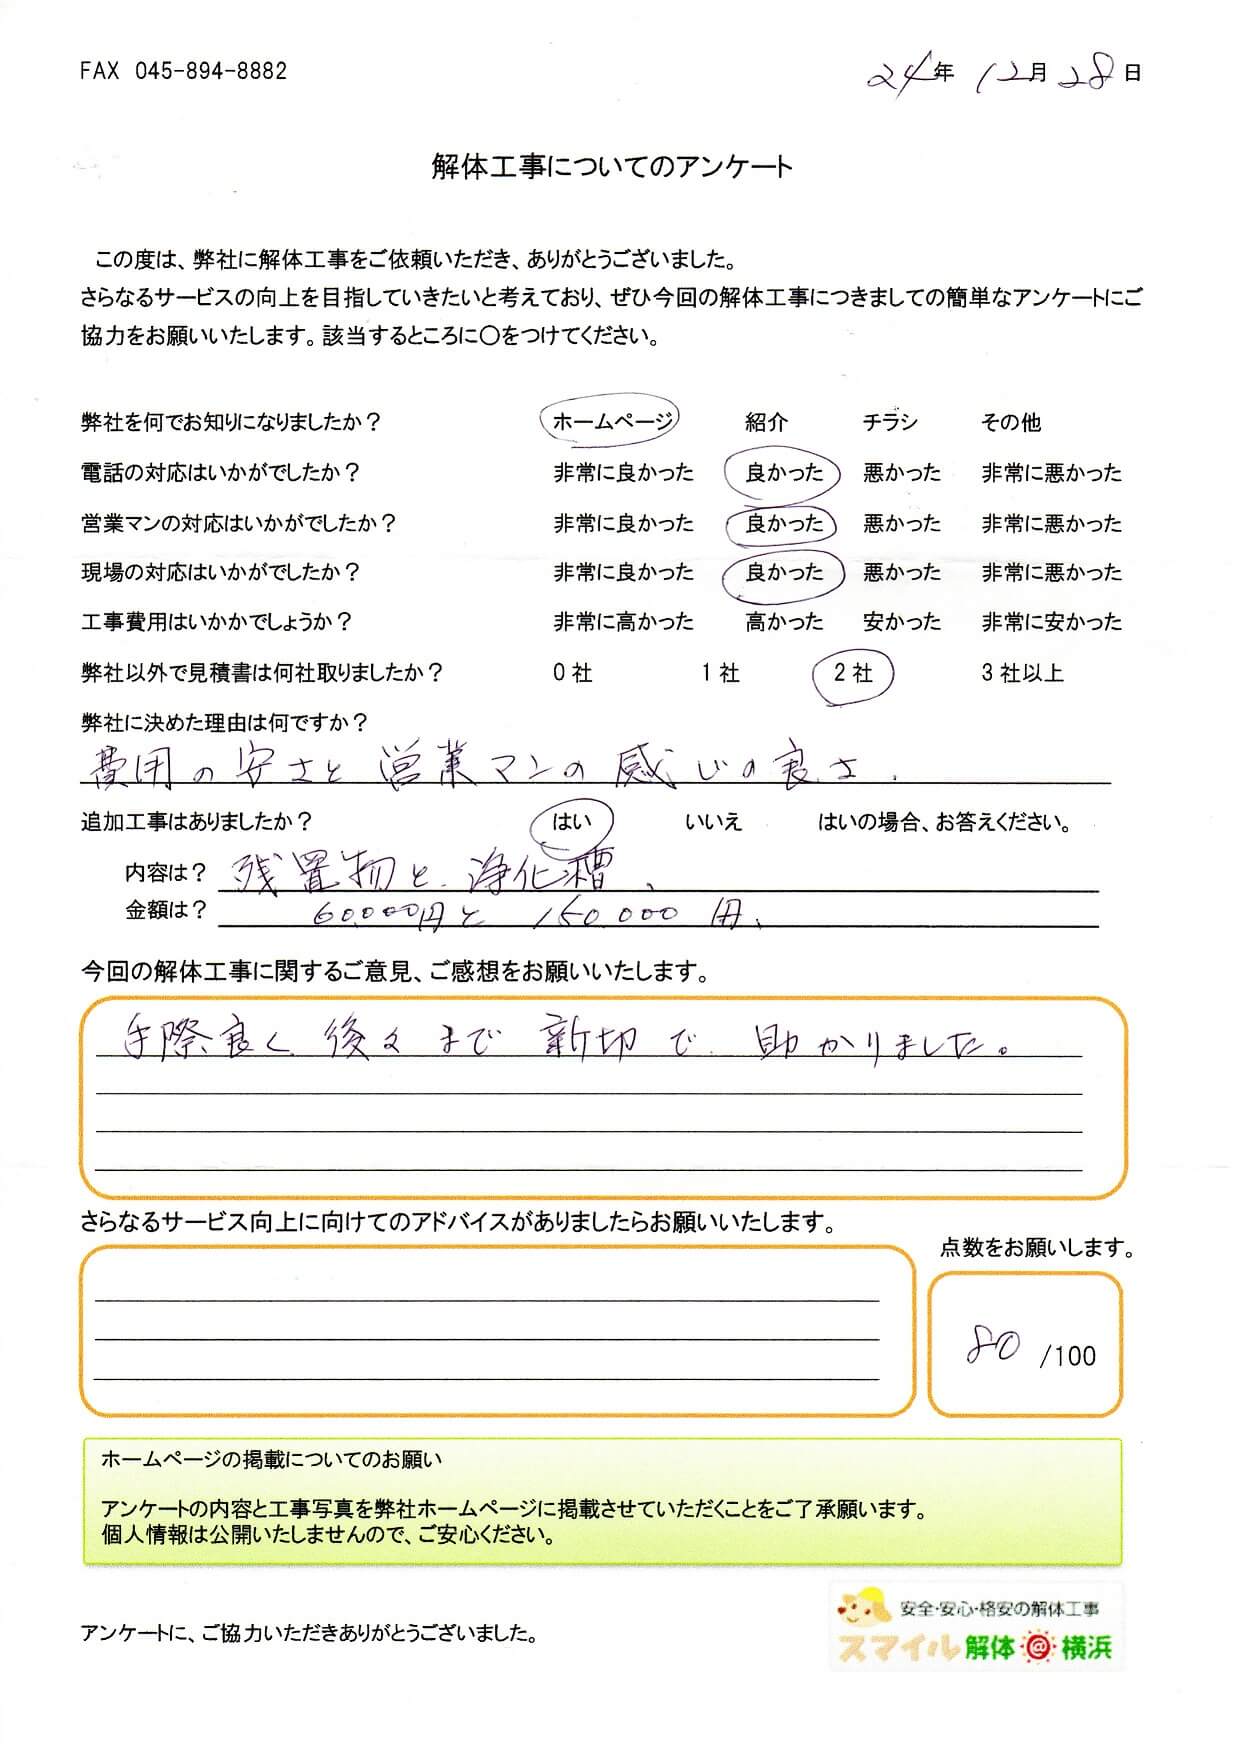 FAX 045-894-8882
24年 12月 28日
解体工事についてのアンケート
この度は、弊社に解体工事をご依頼いただき、ありがとうございました。
さらなるサービスの向上を目指していきたいと考えており、ぜひ今回の解体工事につきましての簡単なアンケートにご
協力をお願いいたします。該当するところに〇をつけてください。
弊社を何でお知りになりましたか？ ホームページ 紹介 チラシ その他
電話の対応はいかがでしたか？ 非常に良かった 良かった 悪かった 非常に悪かった
営業マンの対応はいかがでしたか？ 非常に良かった 良かった 悪かった 非常に悪かった
現場の対応はいかがでしたか？ 非常に良かった 良かった 悪かった 非常に悪かった
工事費用はいかかでしょうか？ 非常に高かった 高かった 安かった 非常に安かった
弊社以外で見積書は何社取りましたか？ 0社 1社 2社 3社以上
弊社に決めた理由は何ですか？
費用の安さと営業マンの感じの良さ.
追加工事はありましたか？ はい いいえ はいの場合、お答えください。
内容は？ 残置物と.浄化槽、
金額は？ 60.000円と 150.000円、
今回の解体工事に関するご意見、ご感想をお願いいたします。
手際良く後々まで 親切で 助かりました。
さらなるサービス向上に向けてのアドバイスがありましたらお願いいたします。
点数をお願いします。
80 /100
ホームページの掲載についてのお願い
アンケートの内容と工事写真を弊社ホームページに掲載させていただくことをご了承願います。
個人情報は公開いたしませんので、ご安心ください。
安全・安心・格安の解体工事
アンケートに、ご協力いただきありがとうございました。
スマイル解体@横浜